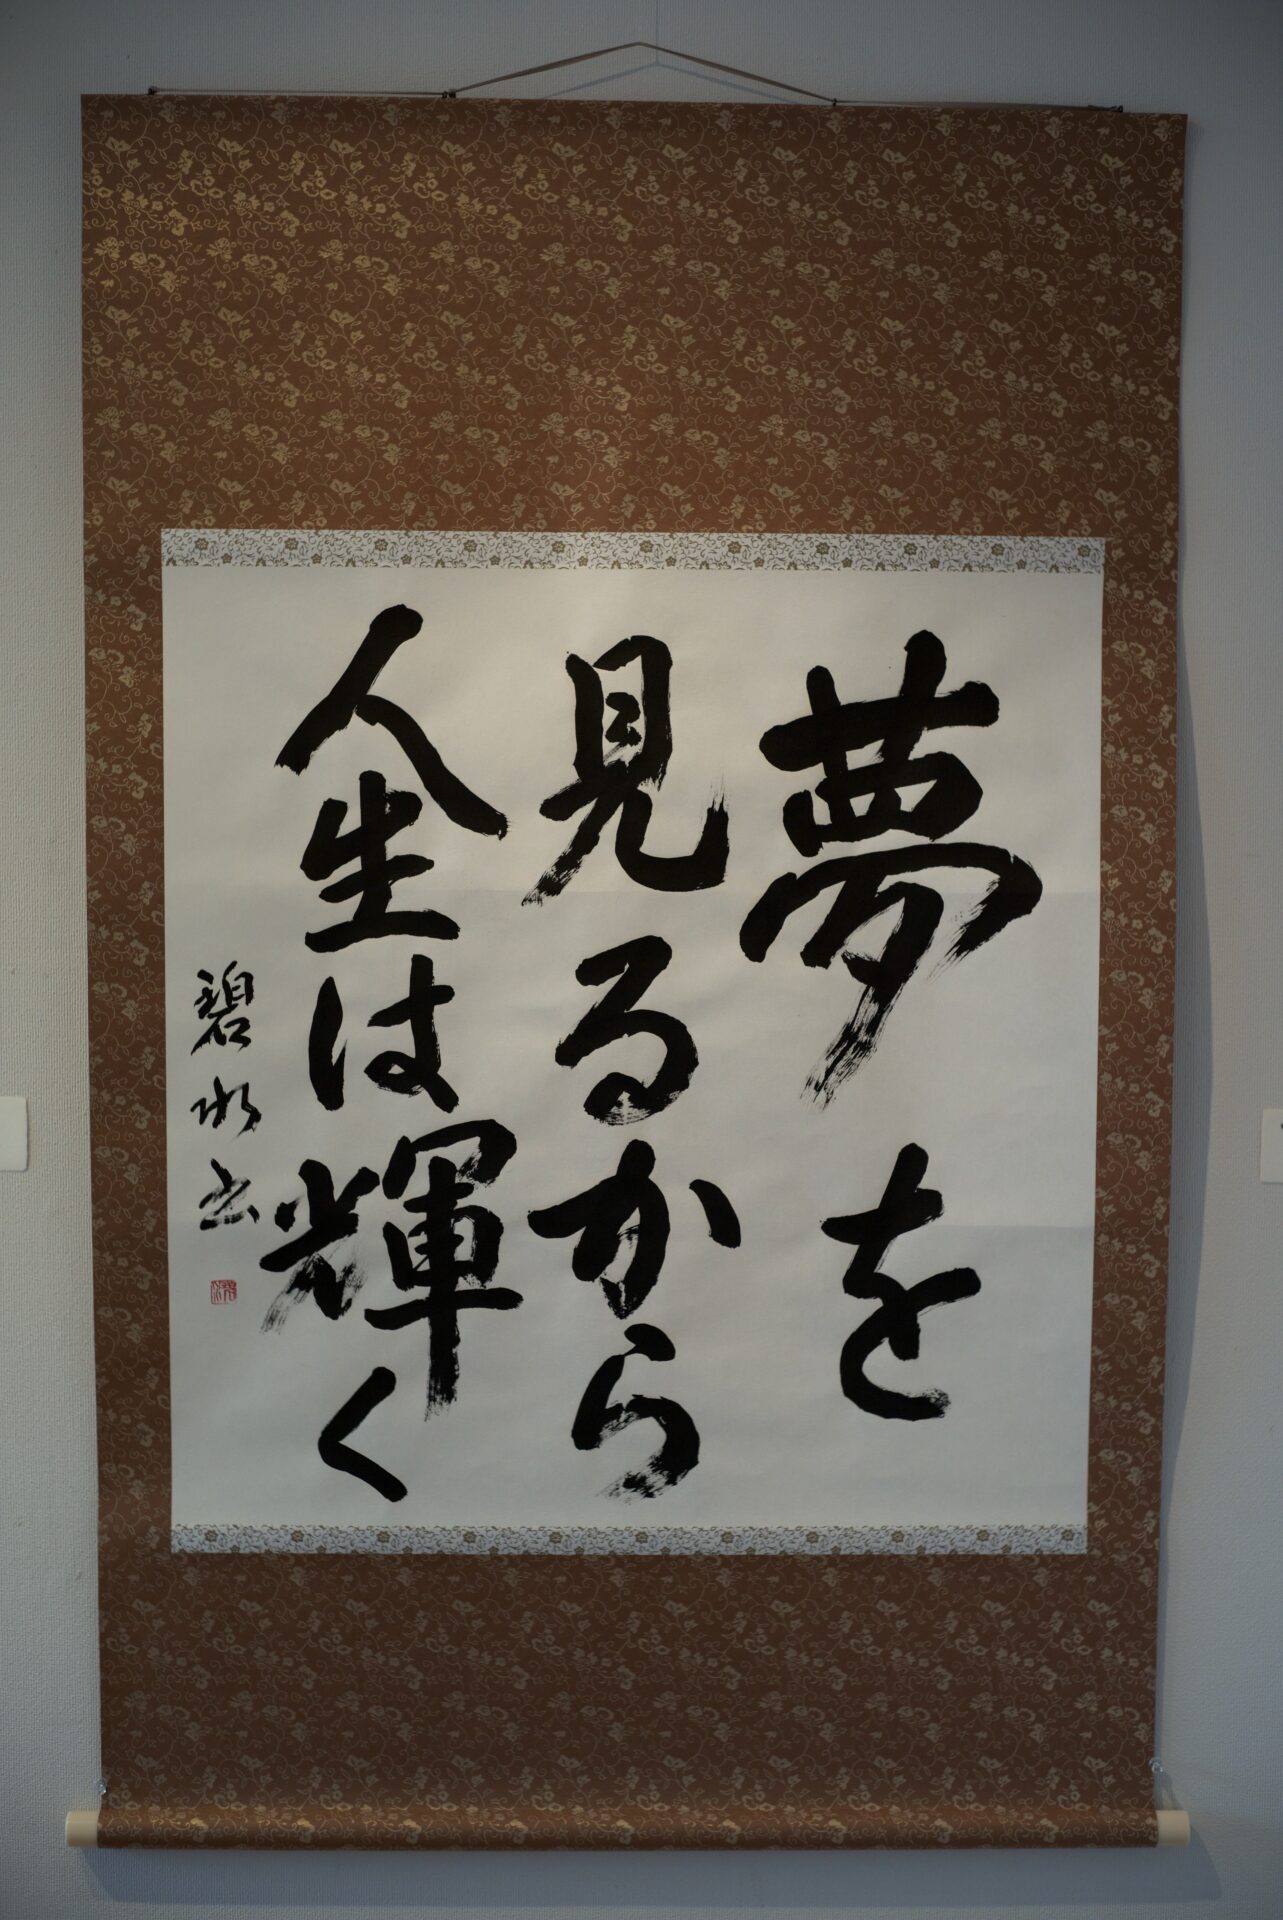 夢を
見るから
人生は輝く
碧水書